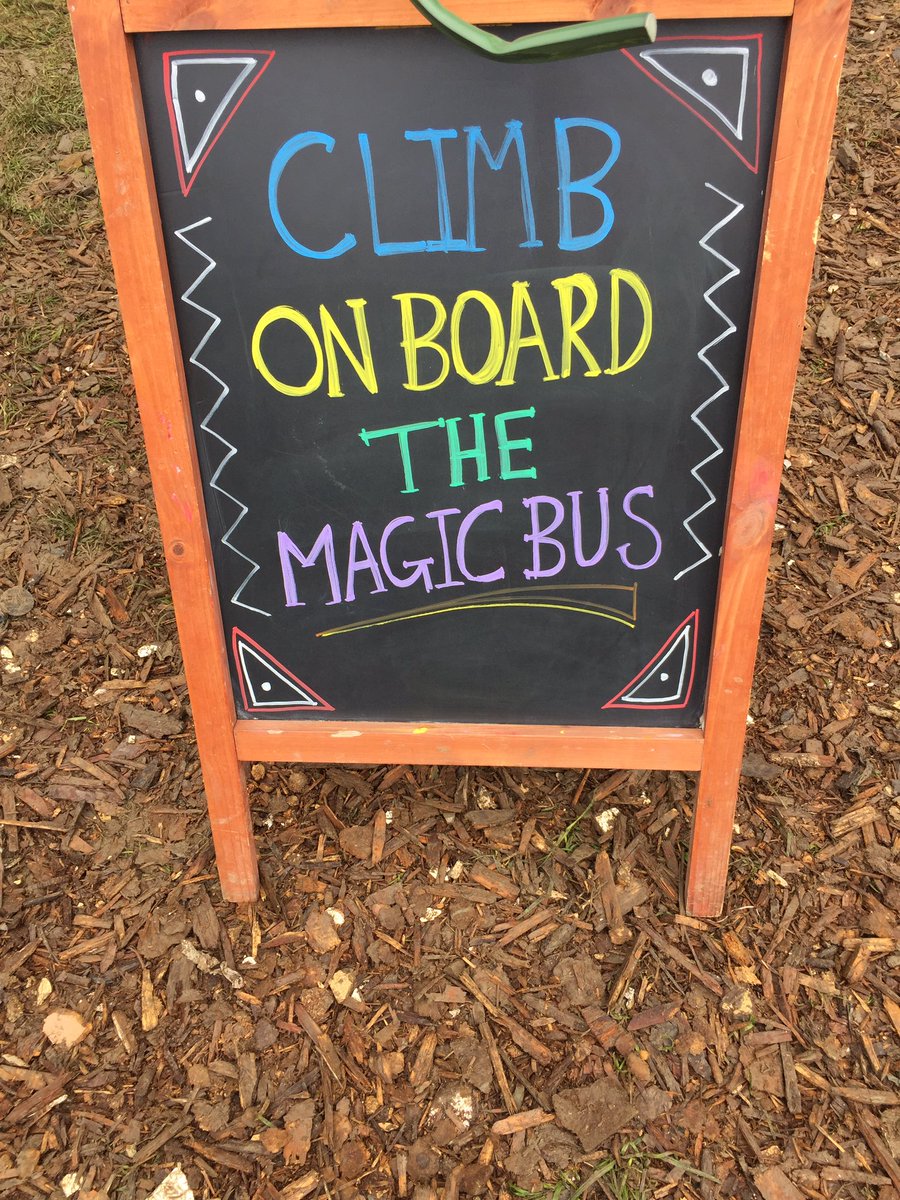 CLIMB
ON BOARD
THE
MAGIC BUS